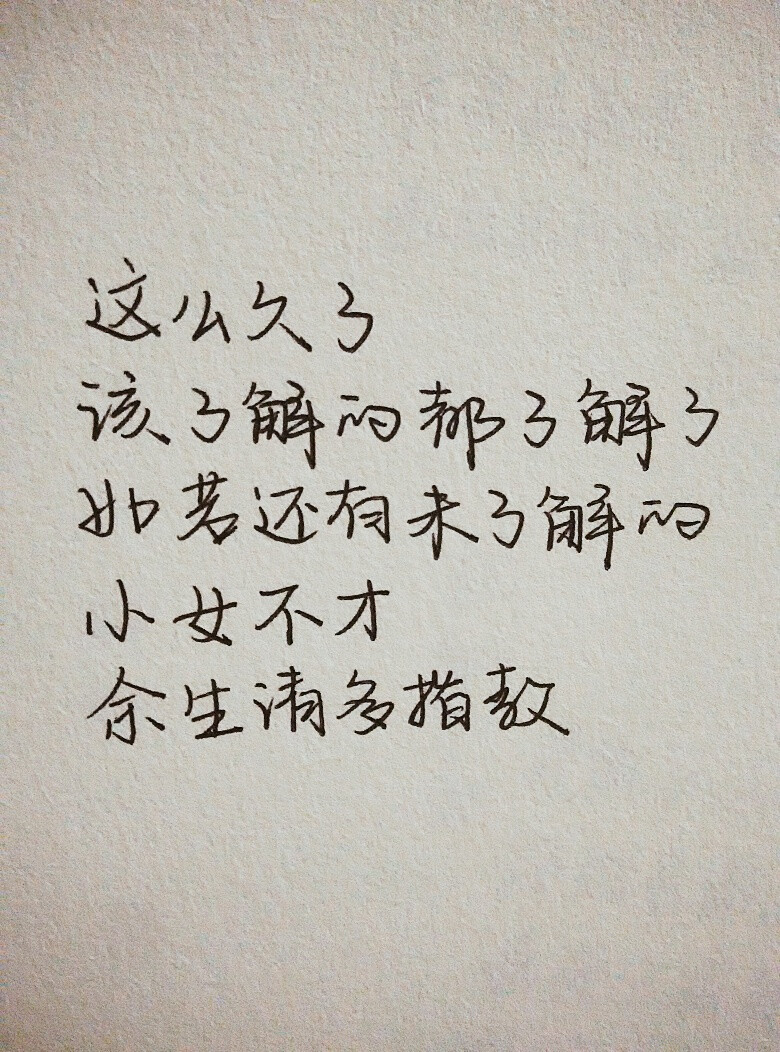 这么久了
该了解的都了解了
如若还有未了解的
小女不才
余生请多指教